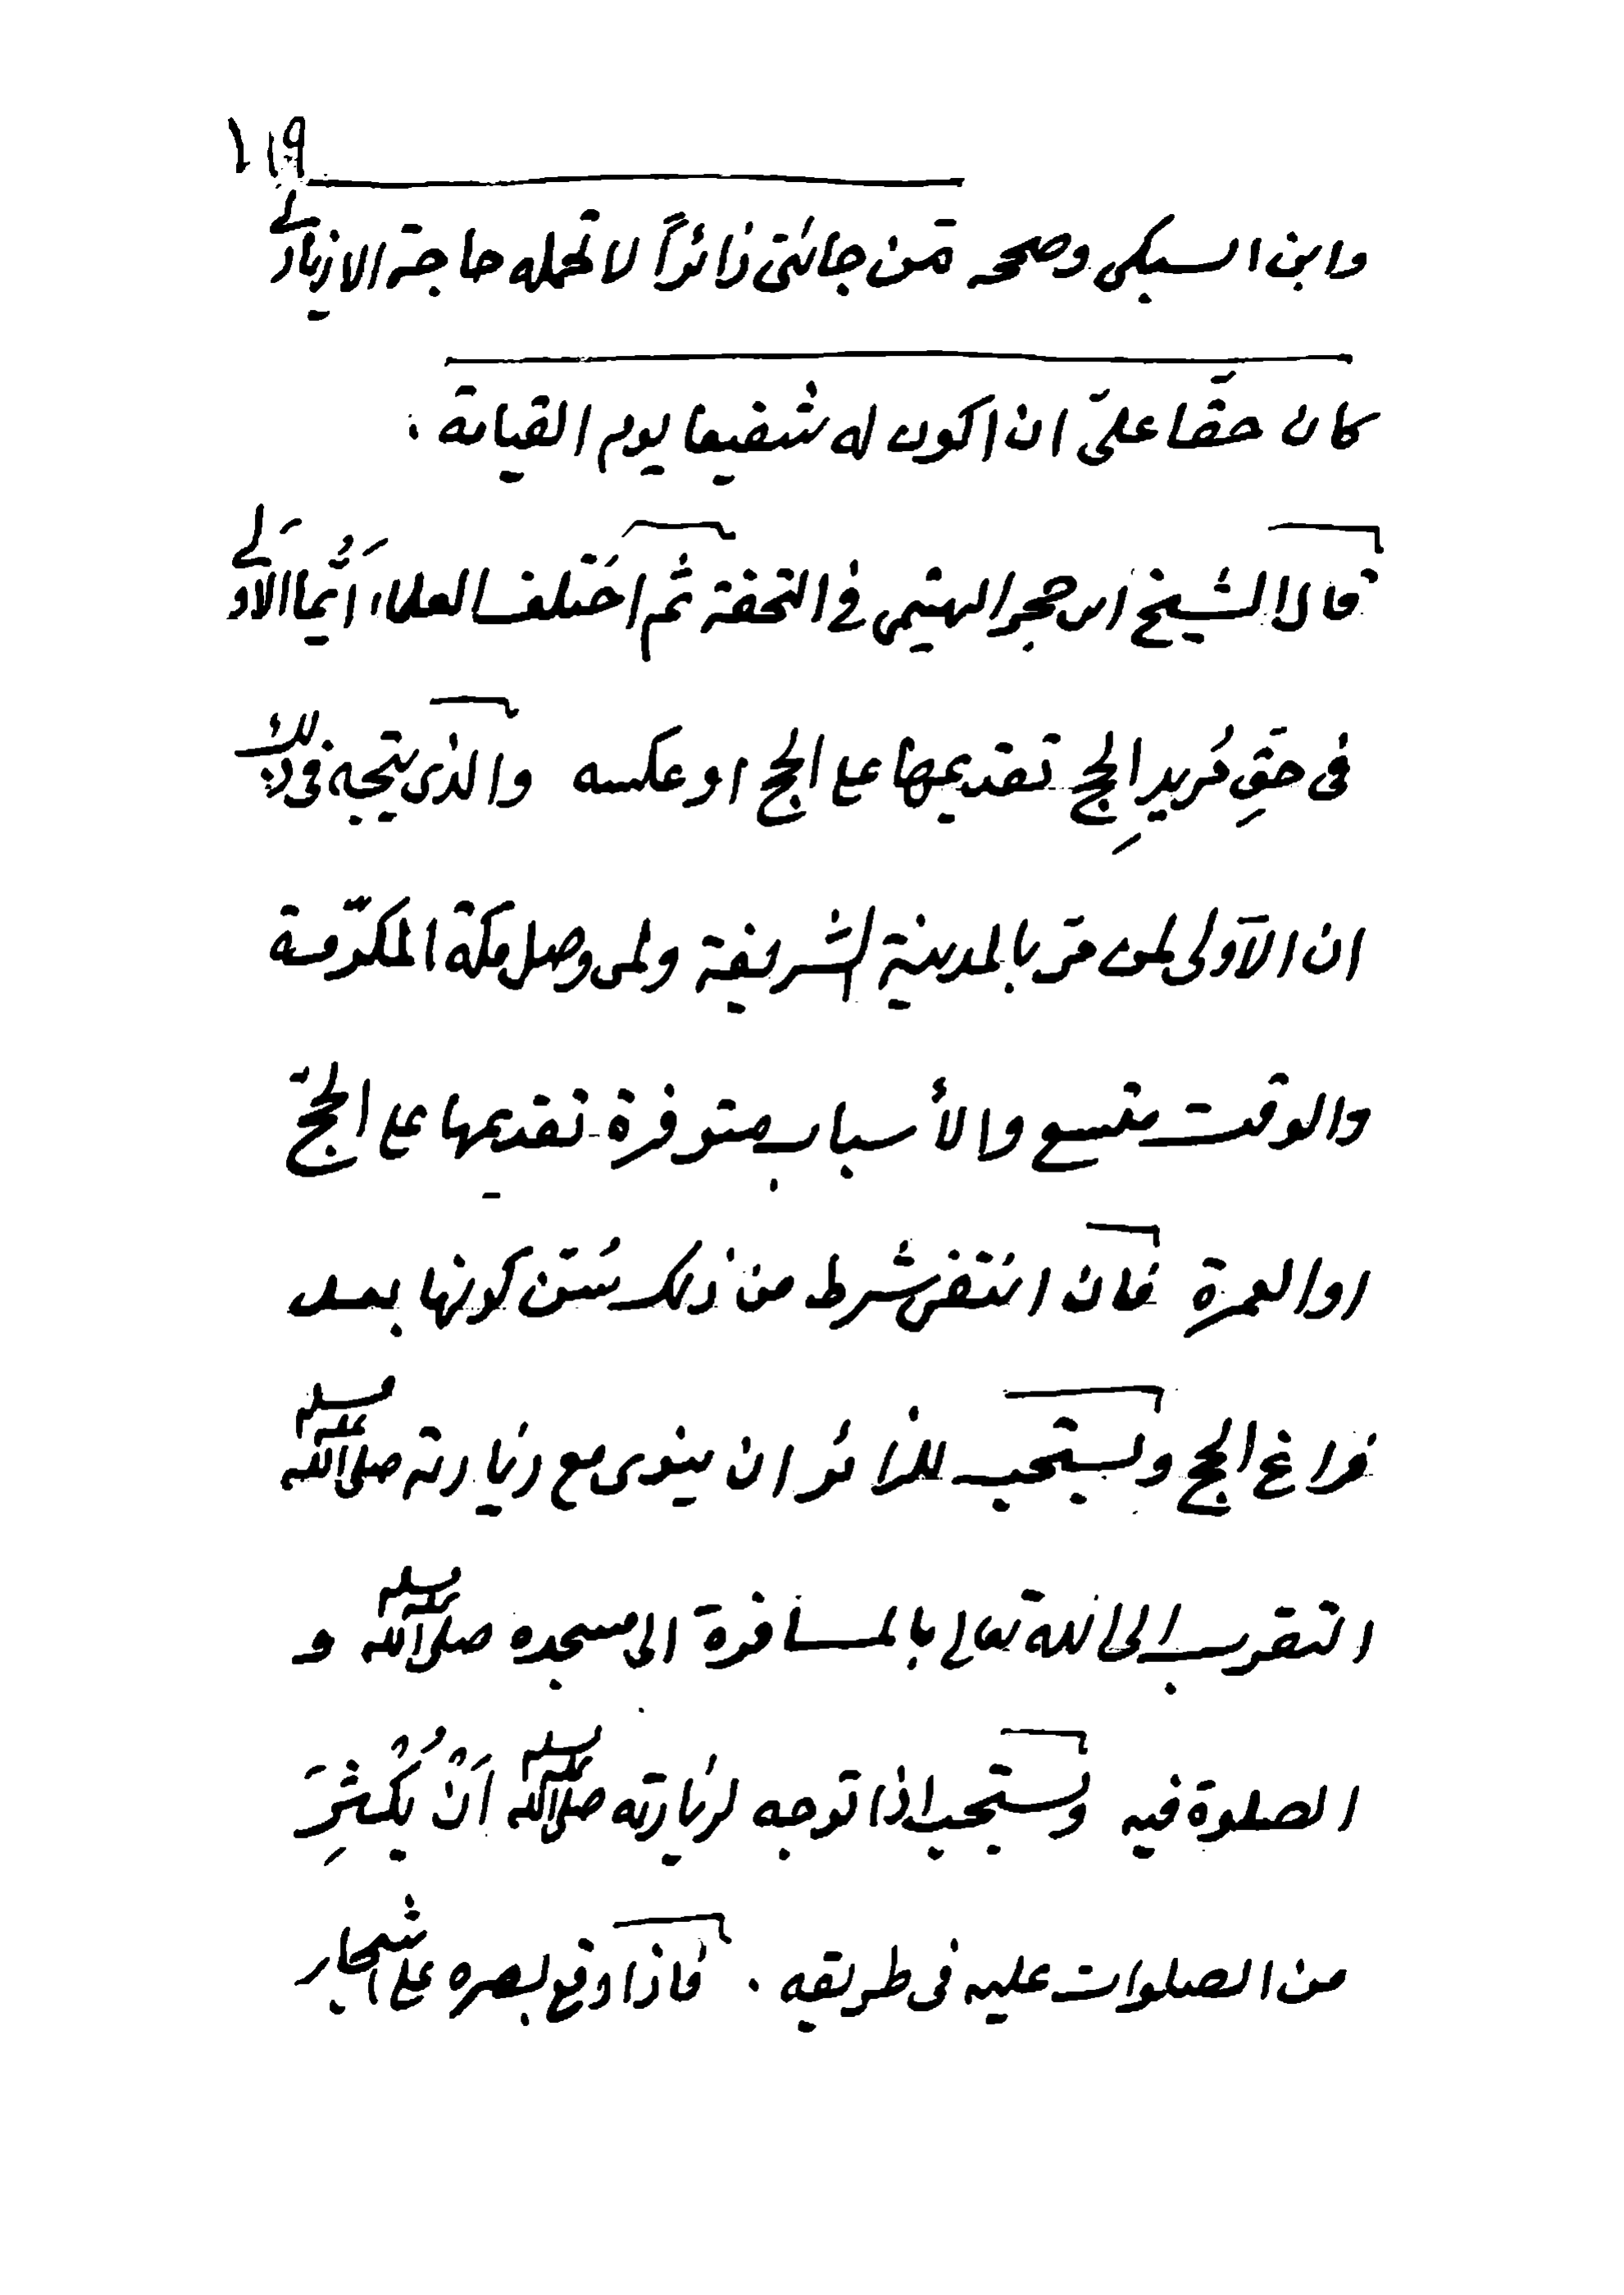 ١١٩
وابن السبكى وصححه مَن جائنى زائراً لا تحمله حاجة الا زيارتى
كان حقّا علىّ ان اكون له شفيعا يوم القيامة .
قال الشيخ ابن حجر الهيتمى فى التحفة ثم اختلف العلماء اَيُّما الاَولى
فى حقِّ مُريدِ الحج تقديمها على الحج او عكسه والذى يتجه فى ذلك
ان الاَولى لمن مرّ بالمدينة الشريفة ولمن وصل مكة المكرّمة
والوقت متسع والأسباب متوفرة تقديمها على الحجّ
او العمرة فان انتفى شرط من ذلك سُنّ كونها بعد
فراغ الحج ويستحب للزائر ان ينوى مع زيارته صلى الله عليه وسلم
التقرب الى الله تعالى بالمسافرة الى مسجده صلى الله عليه وسلم و
الصلوة فيه ويستحب اذا توجه لزيارته صلى الله عليه وسلم اَنْ يُكْثِرَ
من الصلوات عليه فى طريقه . فاذا وقع بصره على اشجار